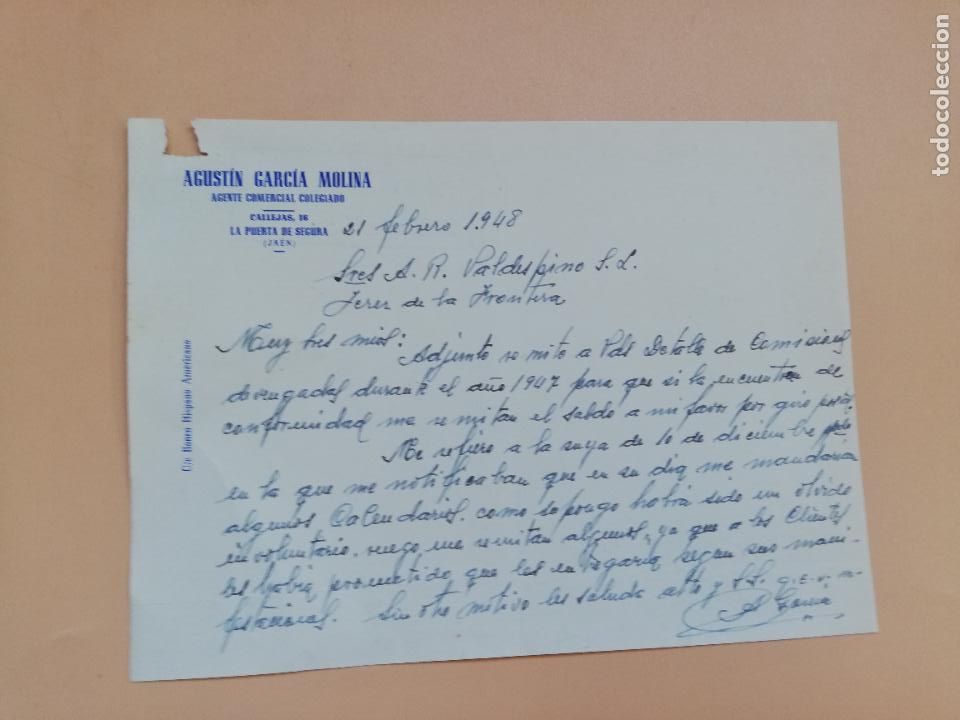 AGUSTÍN GARCÍA MOLINA
AGENTE COMERCIAL COLEGIADO
CALLEJAS, 16
LA PUERTA DE SEGURA
(JAÉN)
21 febrero 1.948
Sres A. R. Valdespino S. L.
Jerez de la Frontera
Muy Sres mios:
Adjunto remito a Vds Detalle de Comisiones
devengadas durante el año 1947 para que si la encuentran de
conformidad me remitan el saldo a mi favor por giro postal,
Me refiero a la suya de 10 de diciembre pdo
en la que me notificaban que en su dia me mandarian
algunos Calendarios, como supongo habrá sido un olvido
involuntario, ruego me remitan algunos, ya que a los Clientes
les habia prometido que los entregaria segun sus mani-
festaciones. Sin otro motivo les saluda atto y s.s. q.e.s.m.
A Garcia
C/c Banco Hispano Americano
todocoleccion